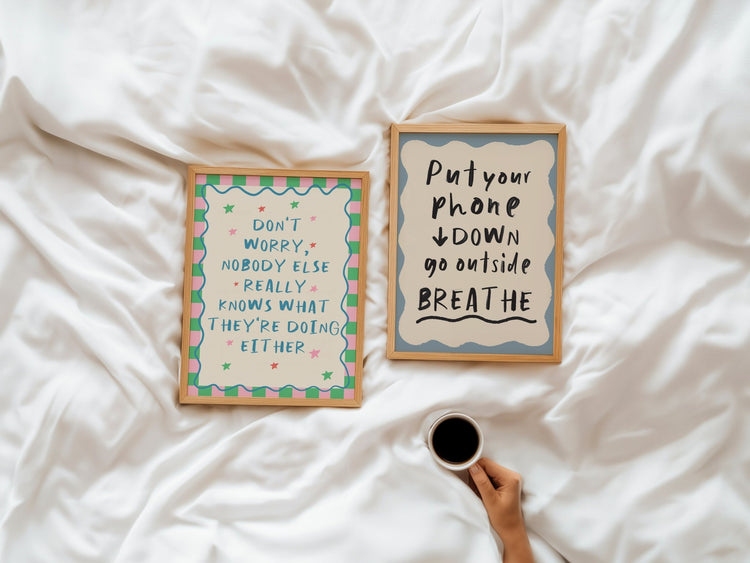 DON'T
WORRY,
NOBODY ELSE
REALLY
KNOWS WHAT
THEY'RE DOING
EITHER
Put your
phone
↓DOWN
go outside
BREATHE